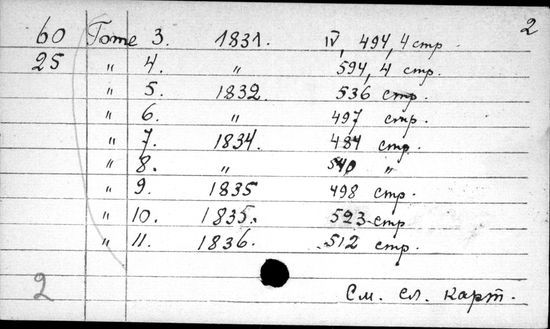 2
60 Tome 3. 1831. IV, 494, 4 стр.
25 " 4. " 594, 4 стр.
" 5. 1832. 536 стр.
" 6. " 497 стр.
" 7. 1834. 484 стр.
" 8. " 540 "
" 9. 1835 498 стр.
" 10. 1835. 523 стр
" 11. 1836. 512 стр.
2 См. сл. карт.